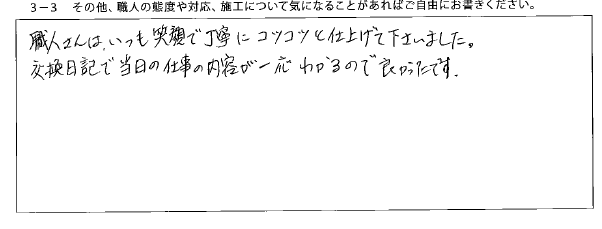 3－3　その他、職人の態度や対応、施工について気になることがあればご自由にお書きください。
職人さんは、いつも笑顔で丁寧にコツコツと仕上げて下さいました。
交換日記で当日の仕事の内容が一応わかるので良かったです.